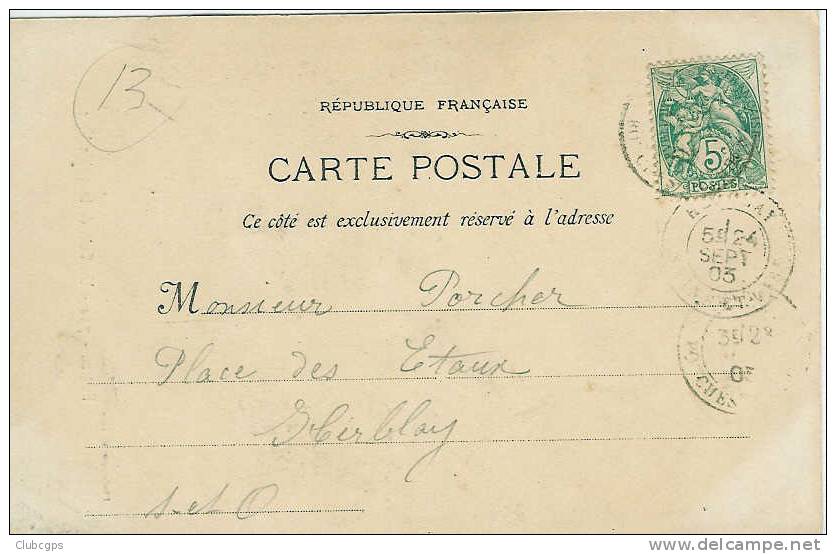 13
RÉPUBLIQUE FRANÇAISE
CARTE POSTALE
Ce côté est exclusivement réservé à l'adresse
5c
POSTES
5E 24
SEPT
03
3E 2
03
Monsieur Porcher
Place des Etaux
Herblay
S-et O
Clubcgps
www.delcampe.net